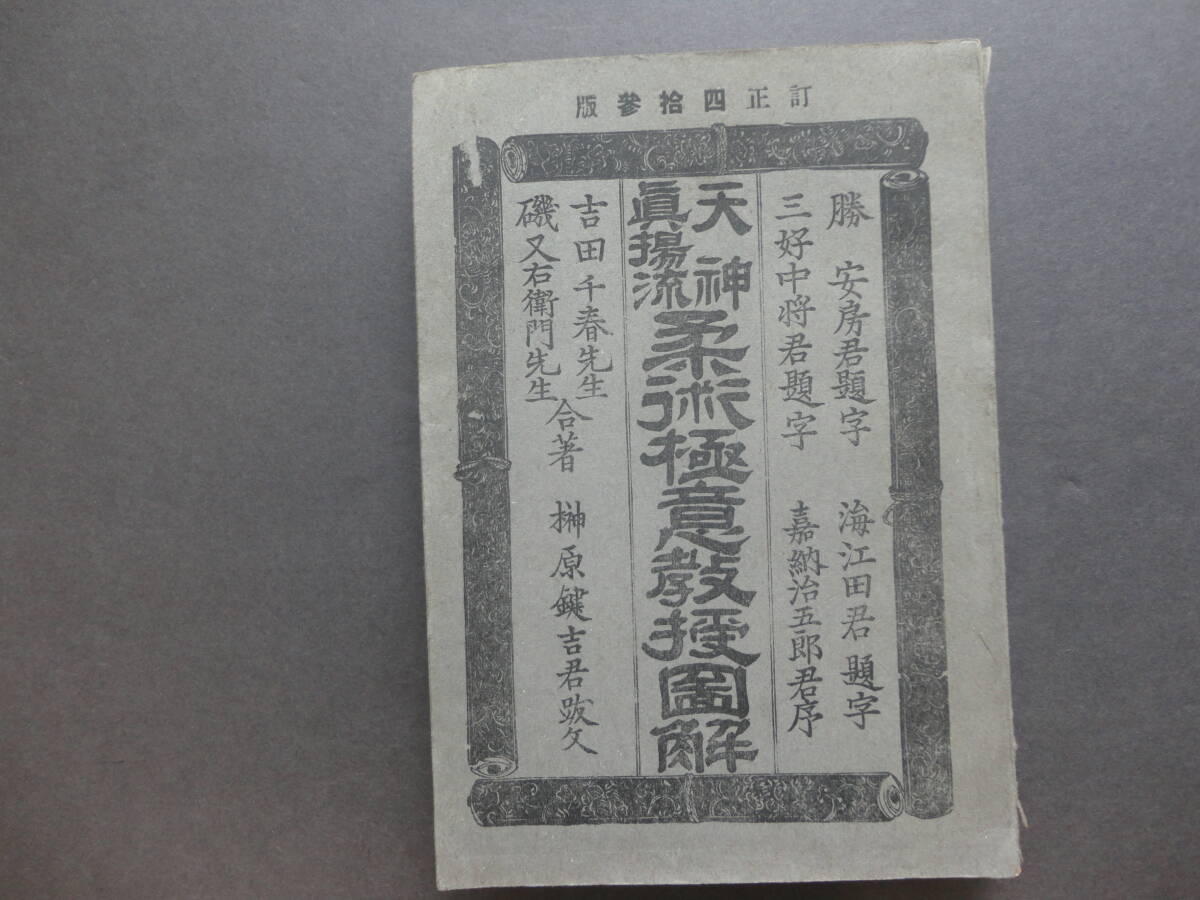 訂正四拾參版
勝 安房君題字 海江田君題字
三好中将君題字 嘉納治五郎君序
天神
眞揚流
柔術極意教授圖解
吉田千春先生
磯又右衛門先生
合著 榊原鍵吉君跋文